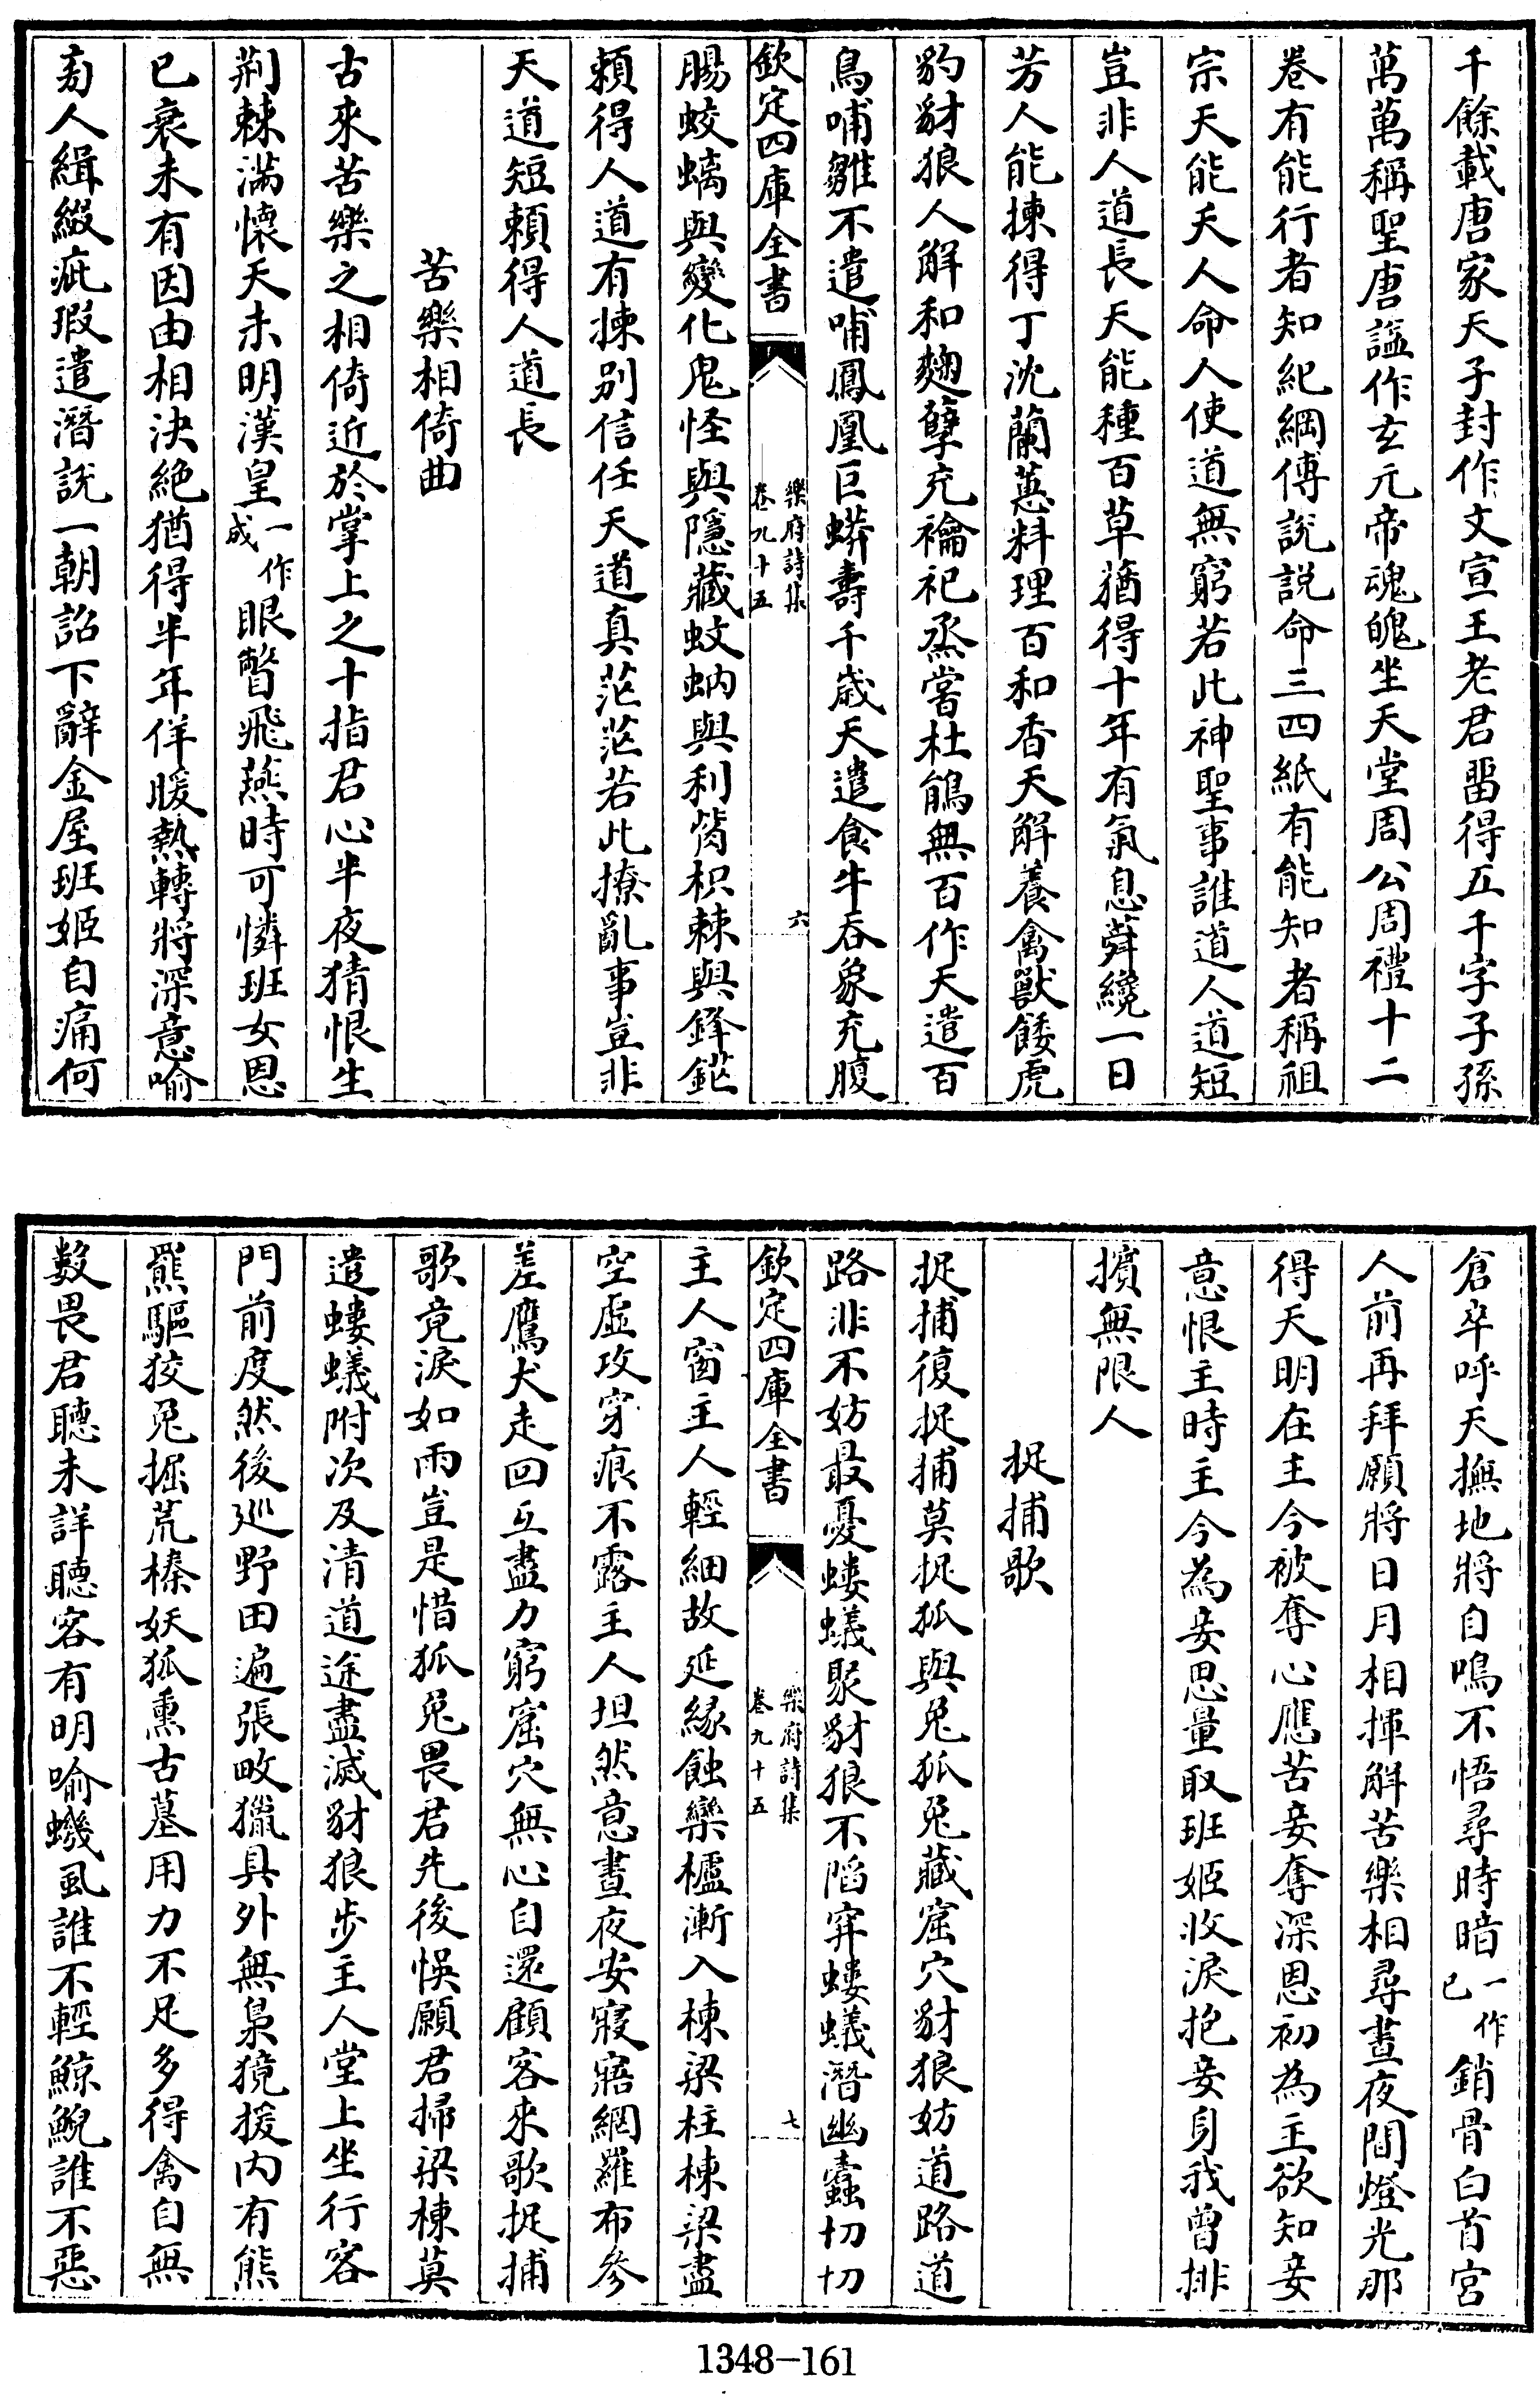 千餘載唐家天子封作文宣王老君留得五千字子孫
萬萬稱聖唐諡作玄元帝魂魄坐天堂周公周禮十二
卷有能行者知紀綱傅說說命三四紙有能知者稱祖
宗天能夭人命人使道無窮若此神聖事誰道人道短
豈非人道長天能種百草蕕得十年有氣息蕣纔一日
芳人能揀得丁沈蘭蕙料理百和香天解養禽獸餧虎
豹豺狼人解和麴糵充禴祀烝嘗杜鵑無百作天遣百
鳥哺雛不遣哺鳳凰巨蟒壽千歲天遣食牛吞象充腹
欽定四庫全書
樂府詩集
卷九十五
六
腸蛟螭與變化鬼怪與隱藏蚊蚋與利觜枳棘與鋒鋩
賴得人道有揀別信任天道真茫茫若此撩亂事豈非
天道短賴得人道長
苦樂相倚曲
古來苦樂之相倚近於掌上之十指君心半夜猜恨生
荆棘滿懷天未明漢皇一作成眼瞥飛燕時可憐班女恩
已衰未有因由相決絕猶得半年佯暖熱轉將深意喻
旁人緝綴疵瑕遣潛說一朝詔下辭金屋班姬自痛何
倉卒呼天撫地將自鳴不悟尋時暗一作已銷骨白首宮
人前再拜願將日月相揮解苦樂相尋晝夜間燈光那
得天明在主今被奪心應苦妾奪深恩初為主欲知妾
意恨主時主今為妾思量取班姬收淚抱妾身我曾排
擯無限人
捉捕歌
捉捕復捉捕莫捉狐與兔狐兔藏窟穴豺狼妨道路道
路非不妨最憂螻蟻聚豺狼不陷穽螻蟻潛幽蠹切切
欽定四庫全書
樂府詩集
卷九十五
七
主人窗主人輕細故延緣蝕欒櫨漸入棟梁柱棟梁盡
空虛攻穿痕不露主人坦然意晝夜安寢寤網羅布參
差鷹犬走回互盡力窮窟穴無心自還顧客來歌捉捕
歌竟淚如雨豈是惜狐兔畏君先後悞願君掃梁棟莫
遣螻蟻附次及清道途盡滅豺狼步主人堂上坐行客
門前度然後巡野田遍張畋獵具外無梟獍援內有熊
羆驅狡兔掘荒榛妖狐熏古墓用力不足多得禽自無
數畏君聽未詳聽客有明喻蟣虱誰不輕鯨鯢誰不惡
1348-161